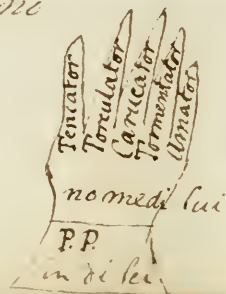 Teniator
Torculator
Carucator
Tormentator
Amator
no medi lui
P. P.
in di lei